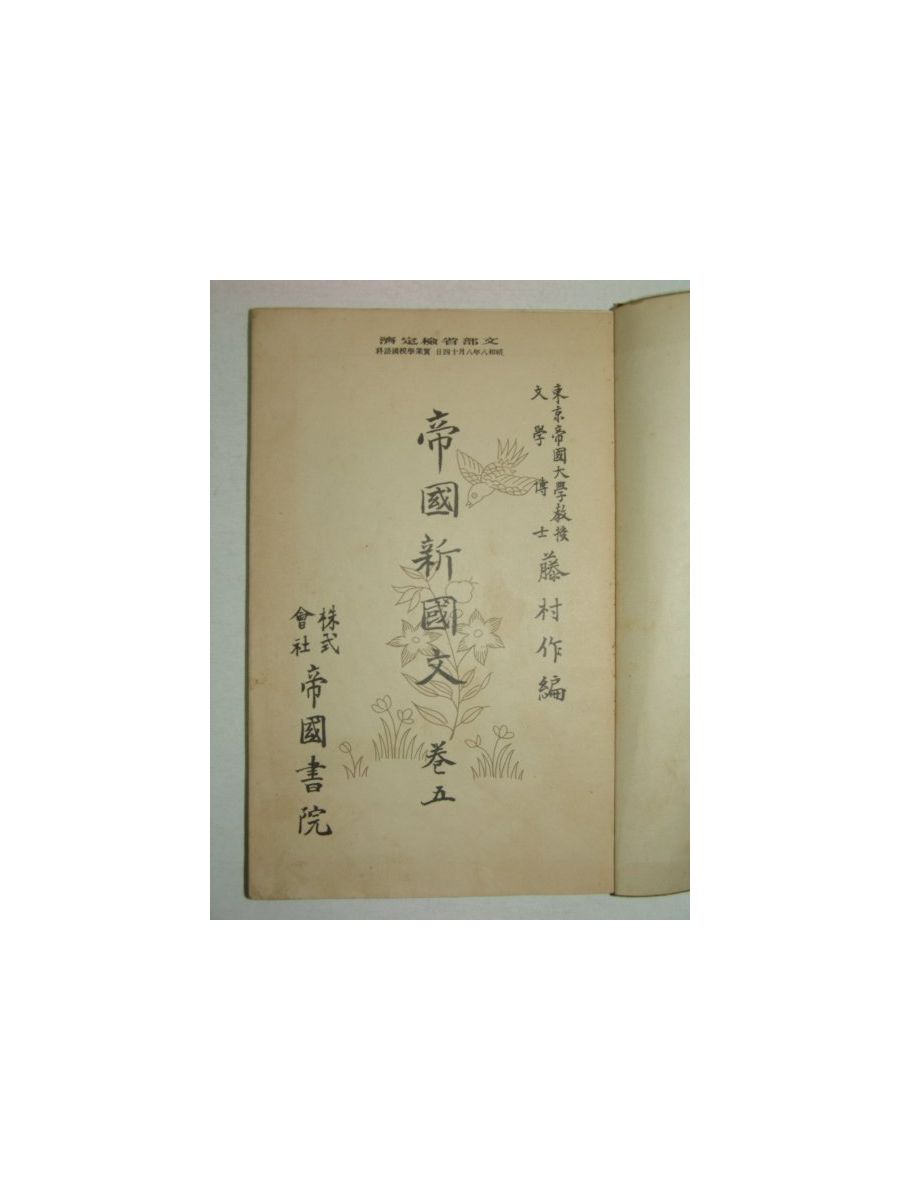 文部省檢定濟
昭和六年八月十四日 實業學校國語科
東京帝國大學教授
文學博士
藤村作編
帝國新國文 卷五
株式
會社
帝國書院